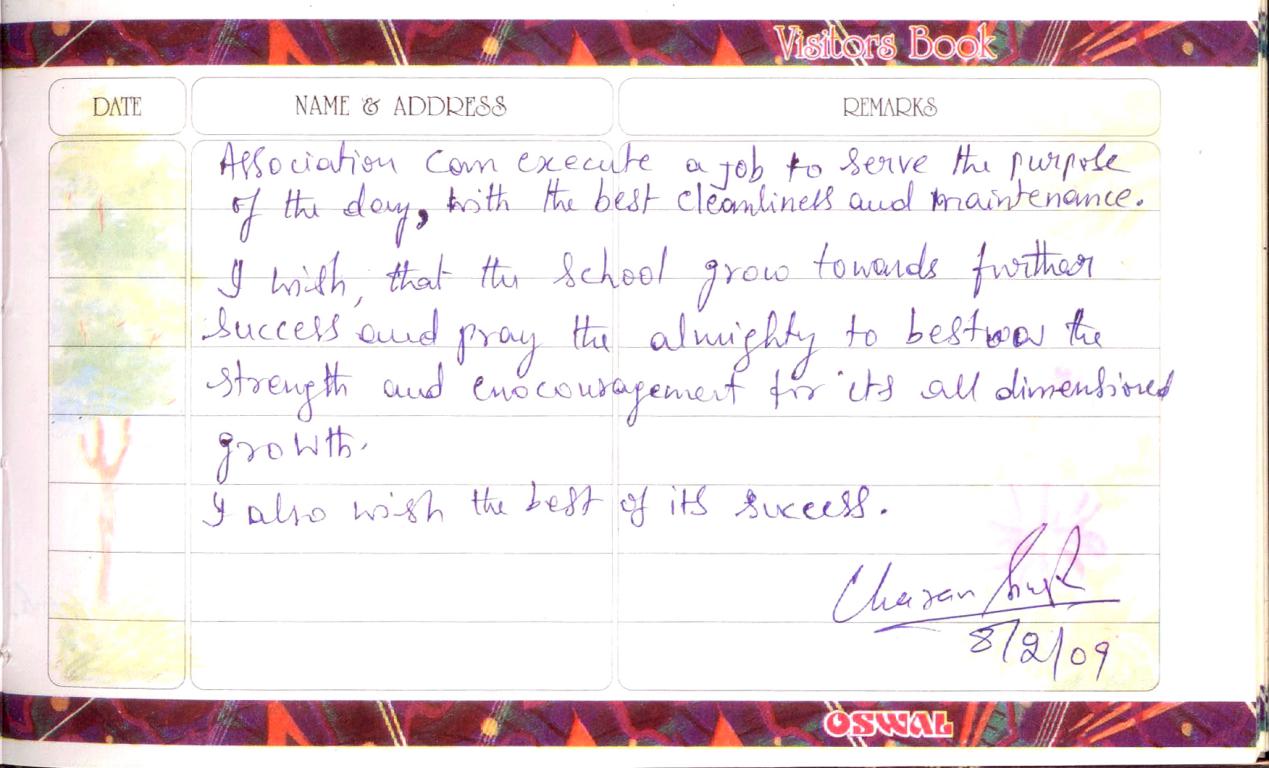 Visitors Book
DATE NAME & ADDRESS REMARKS
Association can execute a job to serve the purpose
of the day, with the best cleanliness and maintenance.
I wish, that the school grow towards further
success and pray the almighty to bestwow the
strength and enocouragement for its all dimensioned
growth.
I also wish the best of its success.
Charan Singh
8/2/09
OSWAL